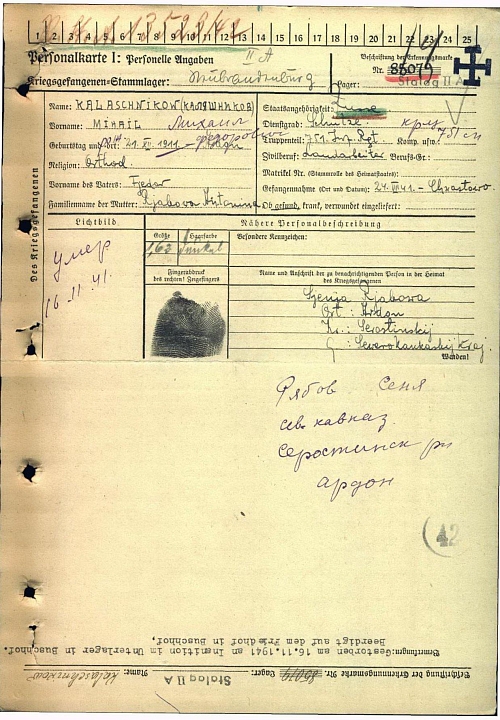 1 2 3 4 5 6 7 8 9 10 11 12 13 14 15 16 17 18 19 20 21 22 23 24 25
Personalkarte I: Personelle Angaben
II A
Kriegsgefangenen-Stammlager: Neubrandenburg
Beschriftung der Erkennungsmarke
Nr. 85079
Lager: Stalag II A
Des Kriegsgefangenen
Name: KALASCHNIKOW КАЛАШНИКОВ
Vorname: MIHAIL Михаил
Федорович
Geburtstag und -ort: 21. XI. 1911
Religion: Orthod.
Vorname des Vaters: Fjedor
Familienname der Mutter: Rjabowa Antonina
Staatsangehörigkeit: Russe
Dienstgrad: Schütze кр-ц
Truppenteil: 751. Inf. Rgt. Komp. usw. 751 сп
Zivilberuf: Landarbeiter Berufs-Gr.
Matrikel Nr. (Stammrolle des Heimatstaates):
Gefangennahme (Ort und Datum): 24. VII 41.
Ob gesund, krank, verwundet eingeliefert:
Lichtbild
Nähere Personalbeschreibung
Größe Haarfarbe
1,62 dunkel
Besondere Kennzeichen:
Fingerabdruck
des rechten! Zeigefingers
Name und Anschrift der zu benachrichtigenden Person in der Heimat
des Kriegsgefangenen
Sjenja Rjabowa
Ort: Ardon
Kr.: Serostinskij
Sewerokaukaskij Kraj
Wenden!
умер
16.11.41.
Рябов Сеня
сев. кавказ.
Серостинск рн
Ардон
42
Bemerkungen: Gestorben am 16.11.1941 an Inanition im Unterlager in Buschhof.
Beerdigt auf dem Friedhof in Buschhof.
Beschriftung der Erkennungsmarke Nr. 85079 Lager: Stalag II A Name: Kalaschnikow